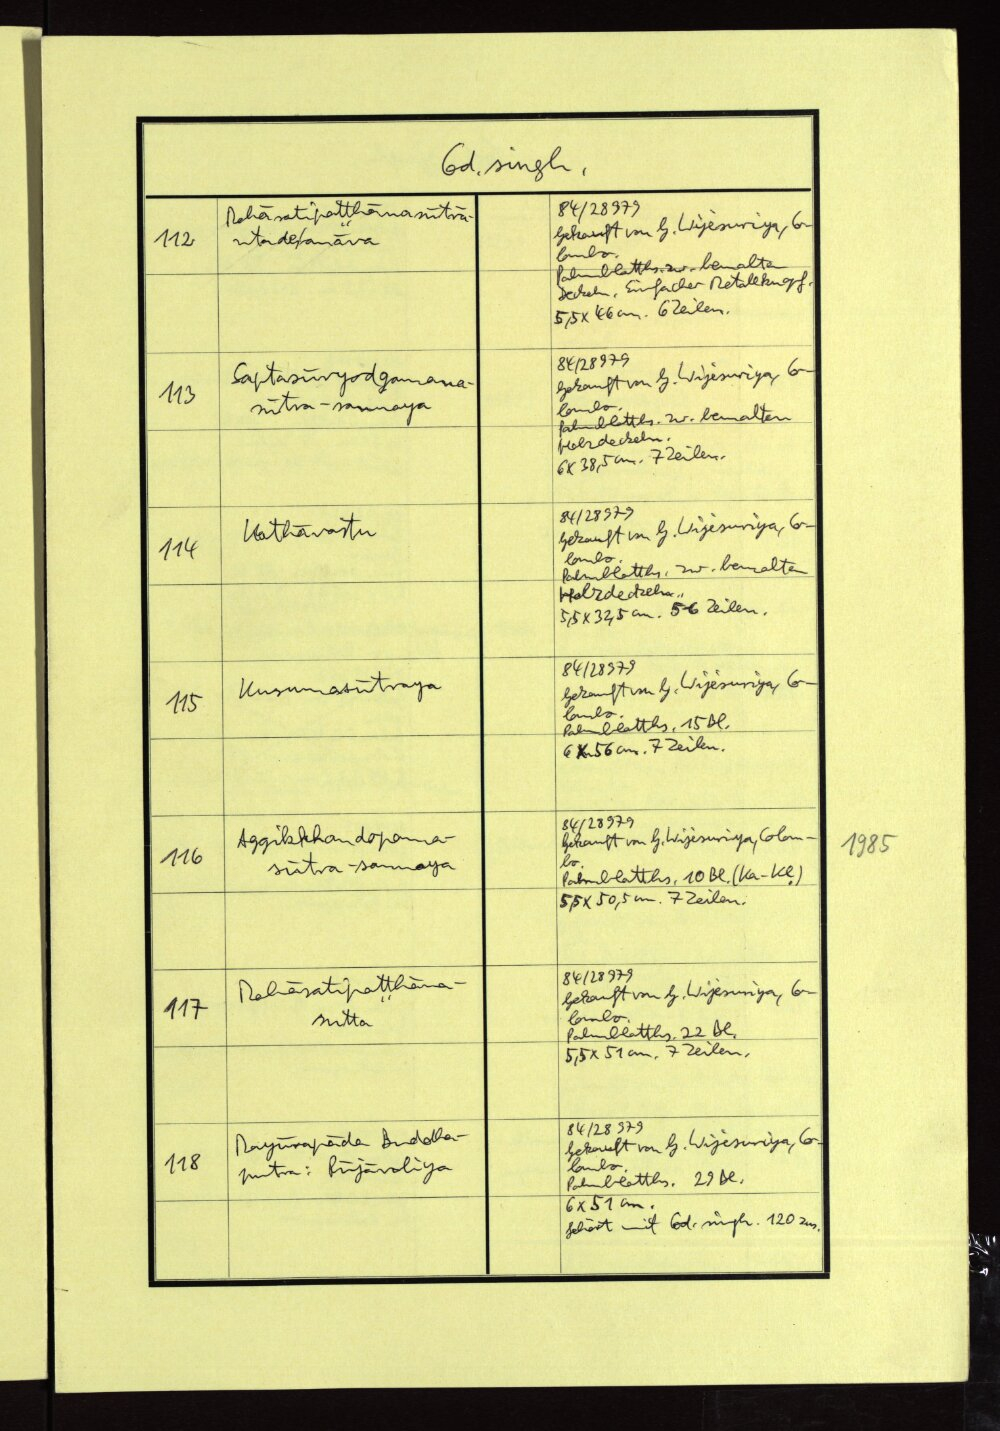 Cod. singh.
112
Mahāsatipaṭṭhānasūtrā-
rtadeśanāva
84/28979
Gekauft von G. Wijesuriya, Co-
lombo.
Palmblatths. zw. bemalten
Deckeln. Einfacher Metallknopf.
5,5 x 46 cm. 6 Zeilen.
113
Saptasūryodgamana-
sūtra-sannaya
84/28979
Gekauft von G. Wijesuriya, Co-
lombo.
Palmblatths. zw. bemalten
Holzdeckeln.
6 x 38,5 cm. 7 Zeilen.
114
Kathāvastu
84/28979
Gekauft von G. Wijesuriya, Co-
lombo.
Palmblatths. zw. bemalten
Holzdeckeln.
5,5 x 32,5 cm. 5-6 Zeilen.
115
Kusumasūtraya
84/28979
Gekauft von G. Wijesuriya, Co-
lombo.
Palmblatths. 15 Bl.
6 x 56 cm. 7 Zeilen.
116
Aggikkhandopama-
sūtra-sannaya
84/28979
Gekauft von G. Wijesuriya, Colom-
bo.
Palmblatths. 10 Bl. (Ka-Kḷ)
5,5 x 50,5 cm. 7 Zeilen.
1985
117
Mahāsatipaṭṭhāna-
sutta
84/28979
Gekauft von G. Wijesuriya, Co-
lombo.
Palmblatths. 22 Bl.
5,5 x 51 cm. 7 Zeilen.
118
Mayūrapāda Buddha-
putra: Pūjāvaliya
84/28979
Gekauft von G. Wijesuriya, Co-
lombo.
Palmblatths. 29 Bl.
6 x 51 cm.
Gehört mit Cod. singh. 120 zus.